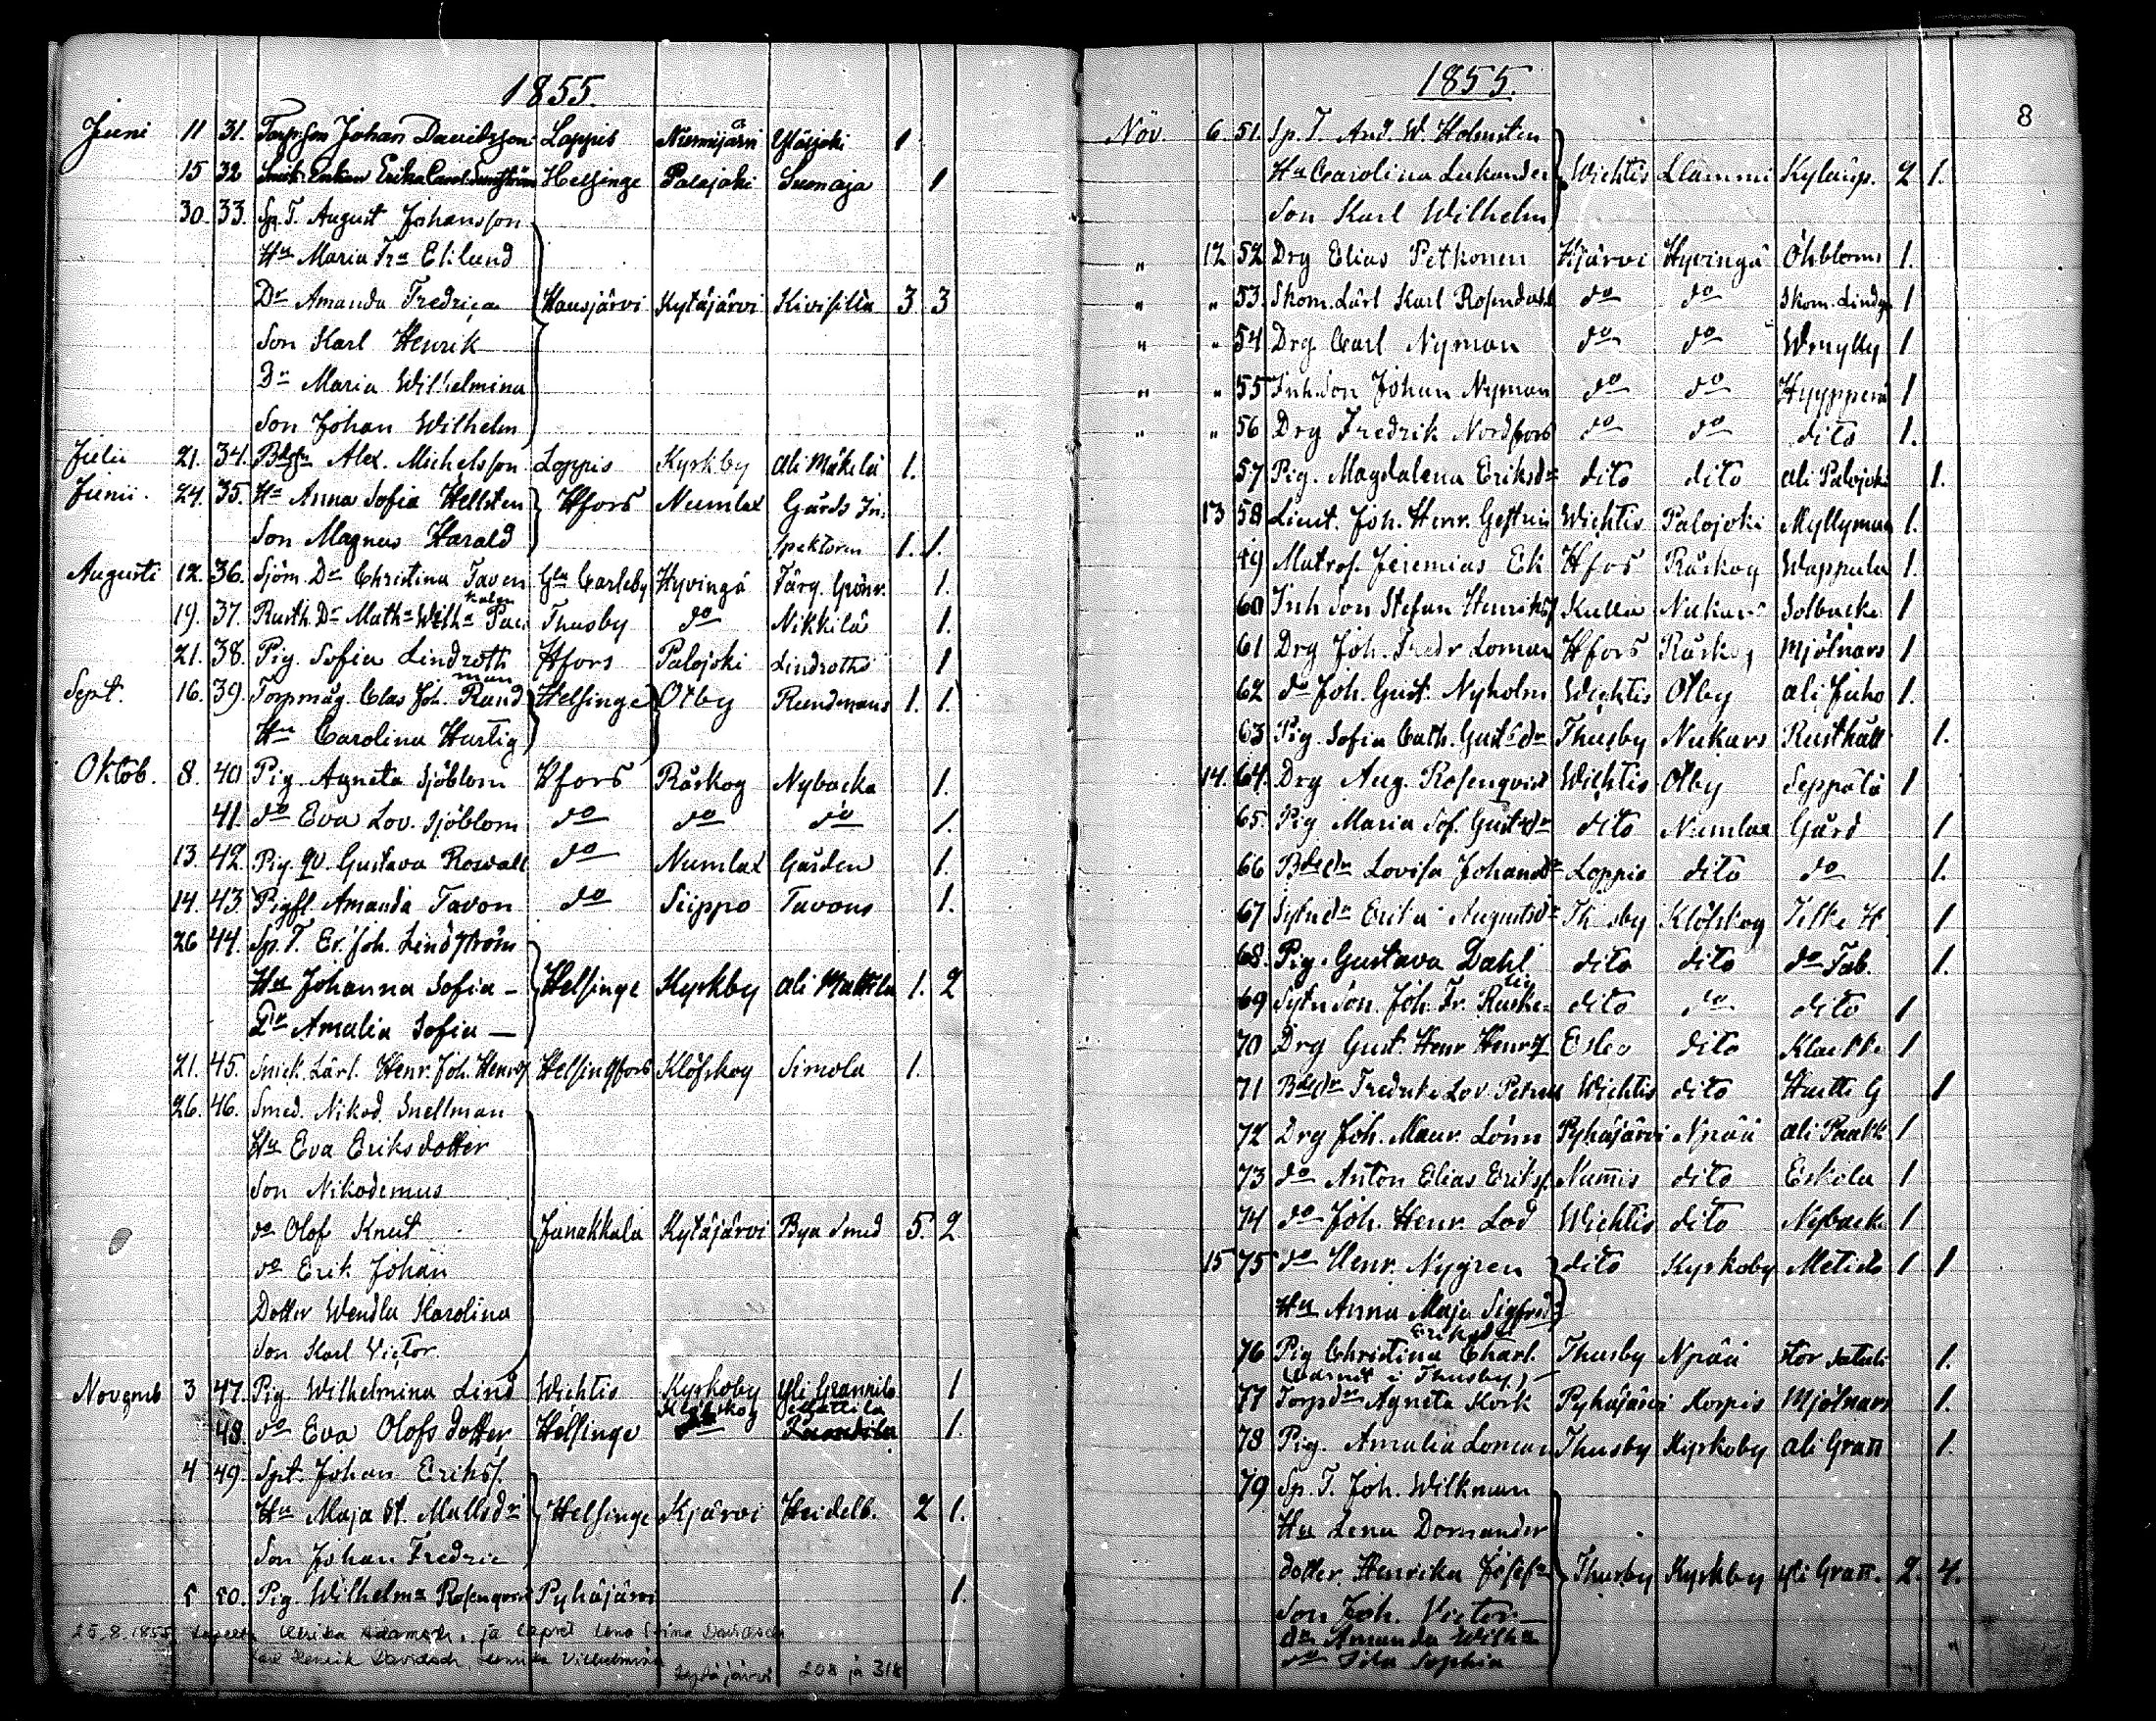 1855.
Juni 11 31. Torp.son Johan Davidsson Loppis Niemijärvi Yläjoki 1
15 32 Enkan Erika Carol. Sundström Helsinge Palajoki Suonoja 1
30. 33. Sp. T. August Johansson
Hu Maria Fra Eklund
Dr Amanda Fredrica Hausjärvi Kytäjärvi Kivisilla 3 3
Son Karl Henrik
Dr Maria Wilhelmina
Son Johan Wilhelm
Julii 21. 34. Alex. Michelsson Loppis Kyrkby Ali Mäkilä 1.
Junii. 24. 35. Hu Anna Sofia Hellsten Hfors Numlax Gårds In-
Son Magnus Harald spektoren 1. 1.
Augusti 12. 36. Sjöm. Dr Christina Taven Gla Carleby Hyvingä Färg. Grönr. 1.
kalen
19. 37. Rusth. Dr Math. Wilha Pac Thusby do Nikkilä 1.
21. 38. Pig. Sofia Lindroth Hfors Palojoki Lindroths 1
man
Sept. 16. 39. Torpmåg. Clas Joh. Rund Helsinge Olby Rundmans 1. 1.
Hu Carolina Hurtig
Oktob. 8. 40 Pig. Agneta Sjöblom Hfors Råskog Nybacka 1.
41. do Eva Lov. Sjöblom do do do 1.
13. 42. Pig. qv. Gustava Roswall do Numlax Gården 1.
14. 43. Pigfl. Amanda Tavon do Siippo Tavons 1.
26 44. Sp. T. Er. Joh. Lindström
Hu Johanna Sofia — Helsinge Kyrkby Ali Mattila 1. 2
Dr Amalia Sofia —
21. 45. Snick. Lärl. Henr. Joh. Henrs Helsingfors Klöfskog Simola 1.
26. 46. Smed. Nikod. Snellman
Hu Eva Eriksdotter
Son Nikodemus
do Olof Knut Janakkala Kytäjärvi Bya Smed 5. 2
do Erik Johan
Dotter Wendla Karolina
Son Karl Victor.
Novemb 3 47. Pig. Wilhelmina Lind Wichtis Kyrkoby Yli Grannila 1
Klöfskog Mattila
48. do Eva Olofsdotter Helsinge 1.
4 49. Spt. Johan Erikss.
Hu Maja St. Mattsdr Helsinge Kjärvi Heidelb. 2 1.
Son Johan Fredric
5 50. Pig. Wilhelma Rosenqvist Pyhäjärvi 1.
25.8.1855 Ulrika Adamsdr. ja lapset Lena Stina Davidsdr
Karl Henrik Davidsdr, Vilhelmina Kytäjärvi 208 ja 318
1855.
8
Nov. 6. 51. Sp. T. And. W. Holmsten
Hu Carolina Lukander Wichtis Lammi Kyläüp. 2 1.
Son Karl Wilhelm
" 12 52 Drg Elias Petkonen Hjärvi Hyvingä Öhbloms 1.
" " 53. Skom. Lärl Karl Rosendahl do do Skom. Lindg. 1
" " 54 Drg Carl Nyman do do Wmylly 1
" " 55 Inh. Son Johan Nyman do do Hyypperä 1
" " 56 Drg Fredrik Nordfors do do dito 1.
57 Pig. Magdalena Eriksdr dito dito Ali Palojoki 1.
13 58 Lieut. Joh. Henr. Gestrin Wichtis Palojoki Myllyman 1.
49 Matros. Jeremias Ek Hfors Råskog Wappula 1.
60 Inh Son Stefan Henrikss Kulla Nukars Solbacka 1
61 Drg Joh. Fredr Loman Hfors Råskog Mjölnars 1
62 do Joh. Gust. Nyholm Wichtis Olby Ali Juho 1.
63 Pig. Sofia Cath. Gustsdr Thusby Nukars Rusthåll 1.
14. 64. Drg Aug. Rosenqvist Wichtis Olby Seppälä 1
65. Pig Maria Sof. Gustsdr dito Numlax Gård 1
66 Lovisa Johansdr Loppis dito do 1.
67 Sytndr Erika Augustsdr Thusby Klöfskog Jelke H 1
68. Pig. Gustava Dahl dito dito do Tab. 1.
69 Sytnson. Joh. Fr. Ruske- dito do dito 1
70 Drg Gust. Henr Henrs Esbo dito Klackk 1
71 Fredrika Lov. Petrus Wichtis dito Hutti G 1
72 Drg Joh. Maur. Lönn Pyhäjärvi Npää Ali Paakk 1
73 do Anton Elias Erikss. Numis dito Eskola 1
74 do Joh. Henr. Lod Wichtis dito Nyback 1
15 75 do Henr. Nygren dito Kyrkoby Metids 1 1
Hu Anna Maja Sigfrids
Eriksdr
76 Pig Christina Charl. Thusby Npää Stor Jatuli 1.
(varnit i Thusby)
77 Torpdr Agneta Kork Pyhäjärvi Korpis Mjölnars 1.
78 Pig. Amalia Loman Thusby Kyrkoby Ali Gran 1.
79 Sp. T. Joh. Wilkman
Hu Lena Dornander
dotter. Henrika Josefa Thusby Kyrkby Yli Gran. 2. 4.
Son Joh. Victor —
dr Amanda Wilha
do Ida Sophia